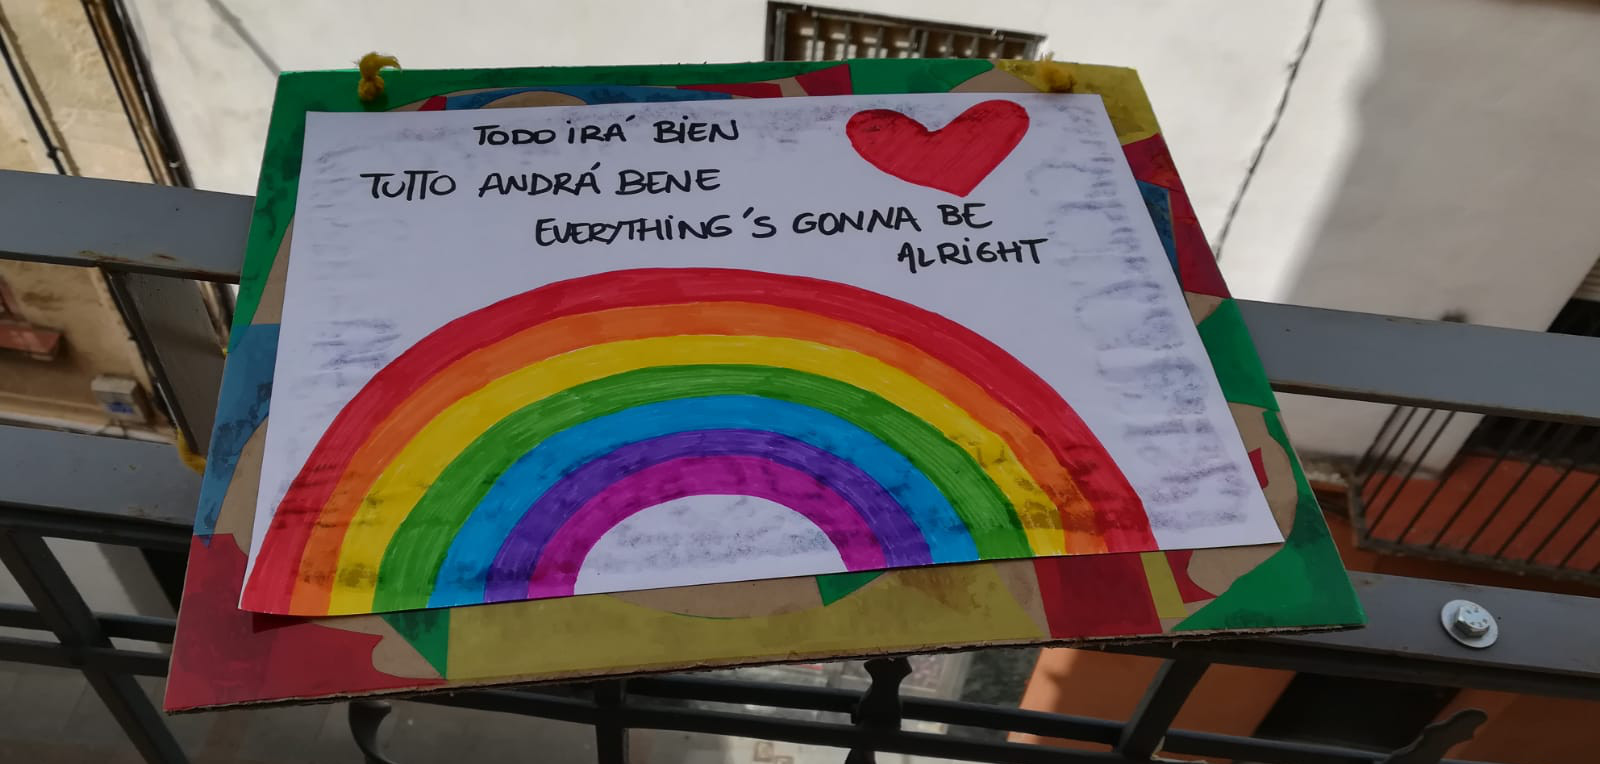 TODO IRÁ BIEN
TUTTO ANDRÁ BENE
EVERYTHING´S GONNA BE
ALRIGHT